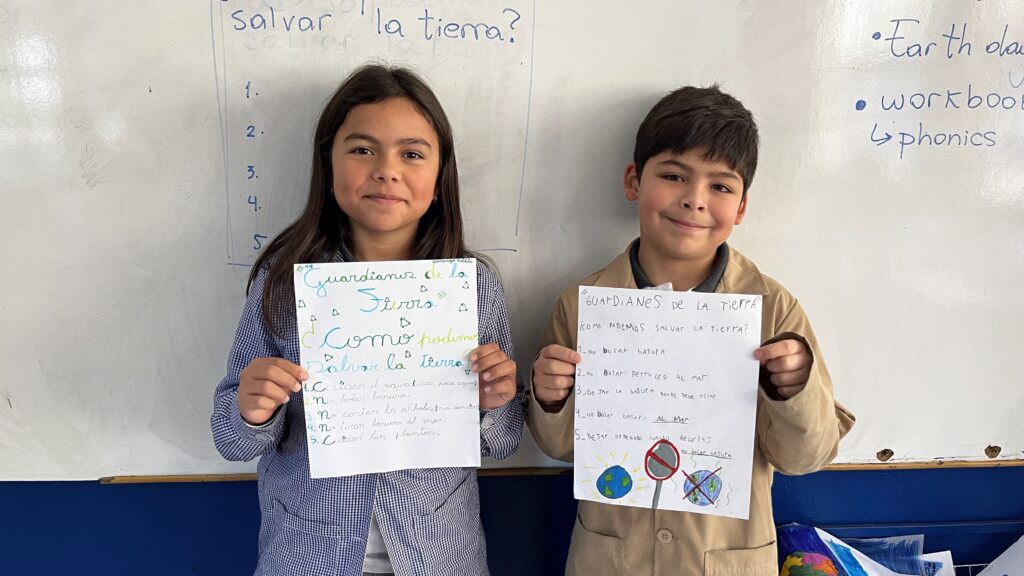 salvar la tierra?
1.
2.
3.
4.
5.
• Earth day
• workbook
↳ phonics
"Guardianes de la
Tierra"
¿Como podemos
Salvar la tierra?
1. Cuidar el agua
2. no botar basura.
3. no cortar los arboles
4. no tirar basura al mar.
5. Cuidar las plantas.
"GUARDIANES DE LA TIERRA"
¿COMO PODEMOS SALVAR LA TIERRA?
1. NO BOTAR BASURA
2. NO BOTAR PETROLEO AL MAR
3 - DEJAR LA BASURA DONDE DEBE ESTAR
4 - NO BOTAR BASURA AL MAR
5 - DEJAR ORDENADO CUANDO RECICLAS
NO BOTAR BASURA